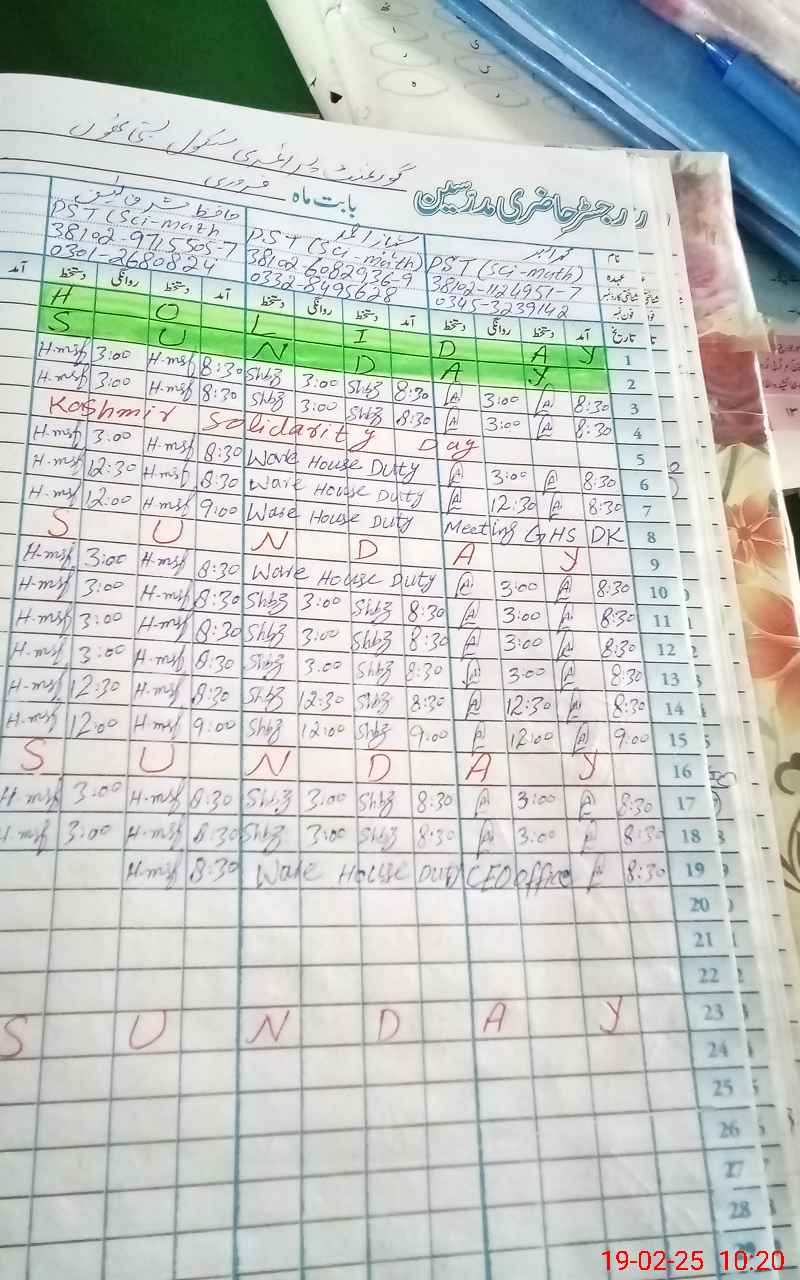 گورنمنٹ پرائمری سکول بستی
رجسٹر حاضری مدرسین بابت ماہ فروری
نام
عہدہ PST (Sci-math) PST (Sci-math) PST (Sci-math)
38102-1124951-7 38102-6082936-9 38102-9715505-7
0345-3239142 0332-8495628 0301-2680824
تاریخ آمد دستخط روانگی دستخط آمد دستخط روانگی دستخط آمد دستخط روانگی دستخط آمد
H O L I D A Y 1
S U N D A Y 2
H-msf 3:00 H-msf 8:30 Shbz 3:00 Shbz 8:30 A 3:00 A 8:30 3
H-msf 3:00 H-msf 8:30 Shbz 3:00 Shbz 8:30 A 3:00 A 8:30 4
Kashmir Solidarity Day 5
H-msf 3:00 H-msf 8:30 Ware House Duty A 3:00 A 8:30 6
H-msf 12:30 H-msf 8:30 Ware House Duty A 12:30 A 8:30 7
H-msf 12:00 H-msf 9:00 Ware House Duty Meeting GHS DK 8
S U N D A Y 9
H-msf 3:00 H-msf 8:30 Ware House Duty A 3:00 A 8:30 10
H-msf 3:00 H-msf 8:30 Shbz 3:00 Shbz 8:30 A 3:00 A 8:30 11
H-msf 3:00 H-msf 8:30 Shbz 3:00 Shbz 8:30 A 3:00 A 8:30 12
H-msf 3:00 H-msf 8:30 Shbz 3:00 Shbz 8:30 A 3:00 A 8:30 13
H-msf 12:30 H-msf 8:30 Shbz 12:30 Shbz 8:30 A 12:30 A 8:30 14
H-msf 12:00 H-msf 9:00 Shbz 12:00 Shbz 9:00 A 12:00 A 9:00 15
S U N D A Y 16
H-msf 3:00 H-msf 8:30 Shbz 3:00 Shbz 8:30 A 3:00 A 8:30 17
H-msf 3:00 H-msf 8:30 Shbz 3:00 Shbz 8:30 A 3:00 A 8:30 18
H-msf 8:30 Ware House Duty CEO office A 8:30 19
20
21
22
S U N D A Y 23
24
25
26
27
28
29
19-02-25 10:20